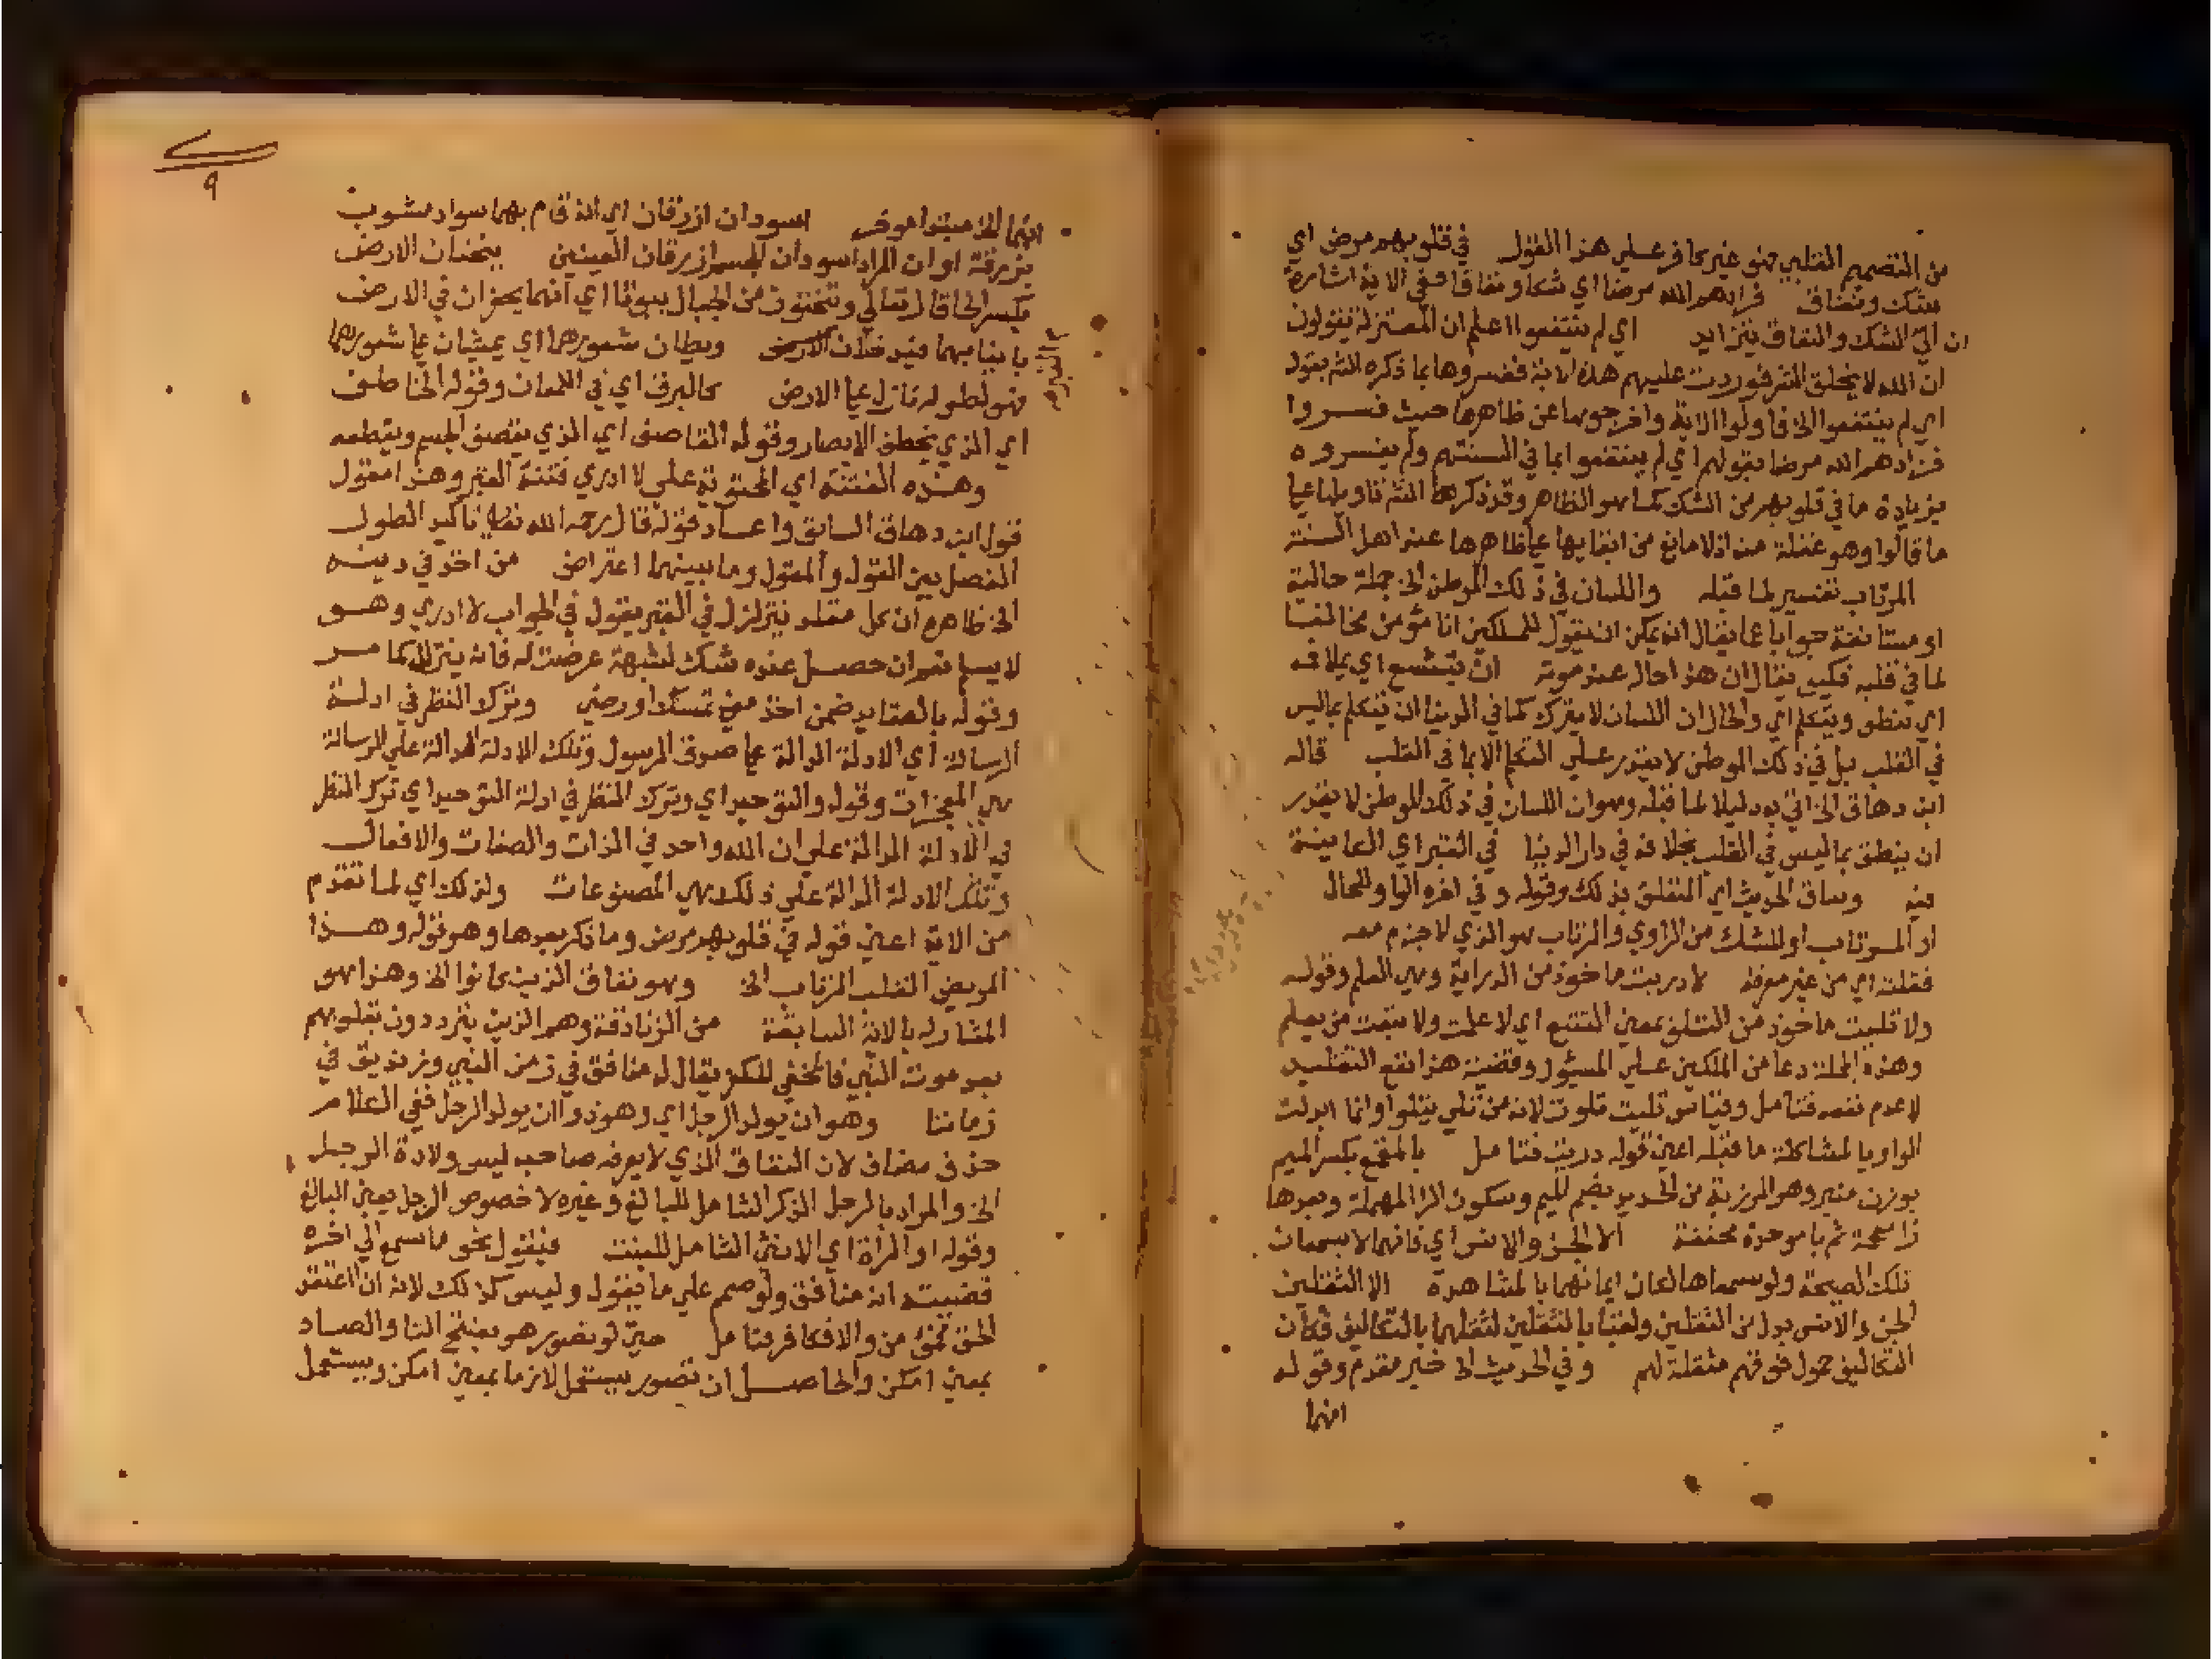 من التصميم القلبي فهو غير كافر على هذا القول في قلوبهم مرض اي
شك ونفاق فزادهم الله مرضا اي شكا ونفاقا ففي الاية اشارة
الى ان الشك والنفاق يتزايد اي لم ينتفعوا اعلم ان المعتزلة يقولون
ان الله لا يخلق الشر فوردت عليهم هذه الاية ففسروها بما ذكره الشـ بقوله
اي لم ينتفعوا الخ فاولوا الاية واخرجوها عن ظاهرها حيث فسروا
فزادهم الله مرضا بقولهم اي لم ينتفعوا بما في السنتهم ولم يفسروه
بزيادة ما في قلوبهم من الشك كما هو الظاهر وقد ذكر هذا الشـ تاويلها على
ما قالوا وهو غفلة منه اذ لا مانع من ابقايها على ظاهرها عند اهل السنة
المرتاب تفسير لما قبله واللسان في ذلك الموطن الخ جملة حالية
او مستانفة جوابا عما يقال انه يمكن ان يقول للملكين انا مؤمن مخالفا
لما في قلبه فكيف يقال ان هذا حاله عند موته ان يتسع اي بملافه
اي ينطق ويتكلم اي والحال ان اللسان لا يترك كما في الدنيا ان يتكلم بما ليس
في القلب بل في ذلك الموطن لا يقدر على التكلم الا بما في القلب قاله
ابن دهاق الخ اتي به دليلا لما قبله وهو ان اللسان في ذلك الموطن لا يقدر
ان ينطق بما ليس في القلب بخلافه في دار الدنيا في القبر اي المعاينة
فيه وساق الحديث اي المتعلق بذلك وقوله وفي اخره الواو للحال
او المرتاب او للشك من الراوي والمرتاب هو الذي لا جزم معه
فقلته اي من غير معرفة لا دريت ماخوذ من الدراية وهي العلم وقوله
ولا تليت ماخوذ من التتلي بمعنى التتبع اي لا علمت ولا تبعت من يعلم
وهذه الجملة دعا من الملكين على المسئول وقضية هذا نفع التقليد
لا عدم نفعه فتامل وقياس تليت تلوت لانه من تلى يتلوا وانما ابدلت
الواو يا لمشاكلة ما قبله اعني قوله دريت فتامل بالمقمع بكسر الميم
بوزن منبر وهو المرزبة من الحديد بضم الميم وسكون الرا المهملة وبعدها
زا معجمة ثم با موحدة مخففة الا الجن والانس اي فانهما لا يسمعان
تلك الصيحة ولو سمعاها لكان ايمانهما بالمشاهدة الا الثقلين
الجن والانس بدل من الثقلين ولقبا بالثقلين لثقلهما بالتكاليف فكان
التكاليف حمول فوقهم مثقلة لهم وفي الحديث الخ خبر مقدم وقوله
انهما
٩
انهما الخ مبتدا موخر اسودان ازرقان اي انه قام بهما سواد مشوب
بزرقة او ان المراد اسودان الجسم ازرقان العينين ينحتان الارض
بكسر الحا قال تعالى وتنحتون من الجبال بيوتا اي انهما يحفران في الارض
بانيابهما فيدخلان الارض ويطان شعورهما اي يمشيان على شعورهما
فهو لطوله نازل على الارض كالبرق اي في اللمعان وقوله الخاطف
اي الذي يخطف الابصار وقوله القاصف اي الذي يقصف الجسم ويقطعه
وهذه الفتنة اي المحتوية على لا ادري فتنة القبر وهذا مقول
قول ابن دهاق السابق واعاد قوله قال رحمه الله تعالى تاكيد الطول
الفصل بين القول والمقول وما بينهما اعتراض من اخذ في دينه
الخ ظاهره ان كل مقلد يتزلزل في القبر يقول في الجواب لا ادري وهو
لا يسلم نعم ان حصل عنده شك لشبهة عرضت له فانه يتزلزل كما مر
وقوله بالعقايد ضمن اخذ معنى تمسك او رضي وترك النظر في ادلة
الرسالة اي الادلة الدالة على صدق الرسول وتلك الادلة الدالة على الرسالة
هي المعجزات وقوله والتوحيد اي وترك النظر في ادلة التوحيد اي ترك النظر
في الادلة الدالة على ان الله واحد في الذات والصفات والافعال
وتلك الادلة الدالة على ذلك هي المصنوعات ولذلك اي لما تقدم
من الاية اعني قوله في قلوبهم مرض وما ذكر بعدها وهو قوله وهذا
المريض القلب المرتاب الخ وهو نفاق الذين كانوا الخ وهذا هو
المشار له بالاية السابقة من الزنادقة وهم الذين يترددون بقلوبهم
بعد موت النبي فالمخفي للكفر يقال له منافق في زمن النبي وزنديق في
زماننا وهو ان يولد الرجل اي وهو ذو ان يولد الرجل ففي الكلام
حذف مضاف لان النفاق الذي لا يعرفه صاحبه ليس ولادة الرجل
الخ والمراد بالرجل الذكر الشامل للبالغ وغيره لا خصوص الرجل بمعنى البالغ
وقوله او المرأة اي الانثى الشامل للبنت فيقول نحو ما سمع الي اخره
قضيته انه منافق ولو صمم على ما يقول وليس كذلك لانه ان اعتقد
الحق فمؤمن والا فكافر فتامل حين لو تصور هو بفتح التا والصاد
بمعنى امكن والحاصل ان تصور يستعمل لازما بمعنى امكن ويستعمل